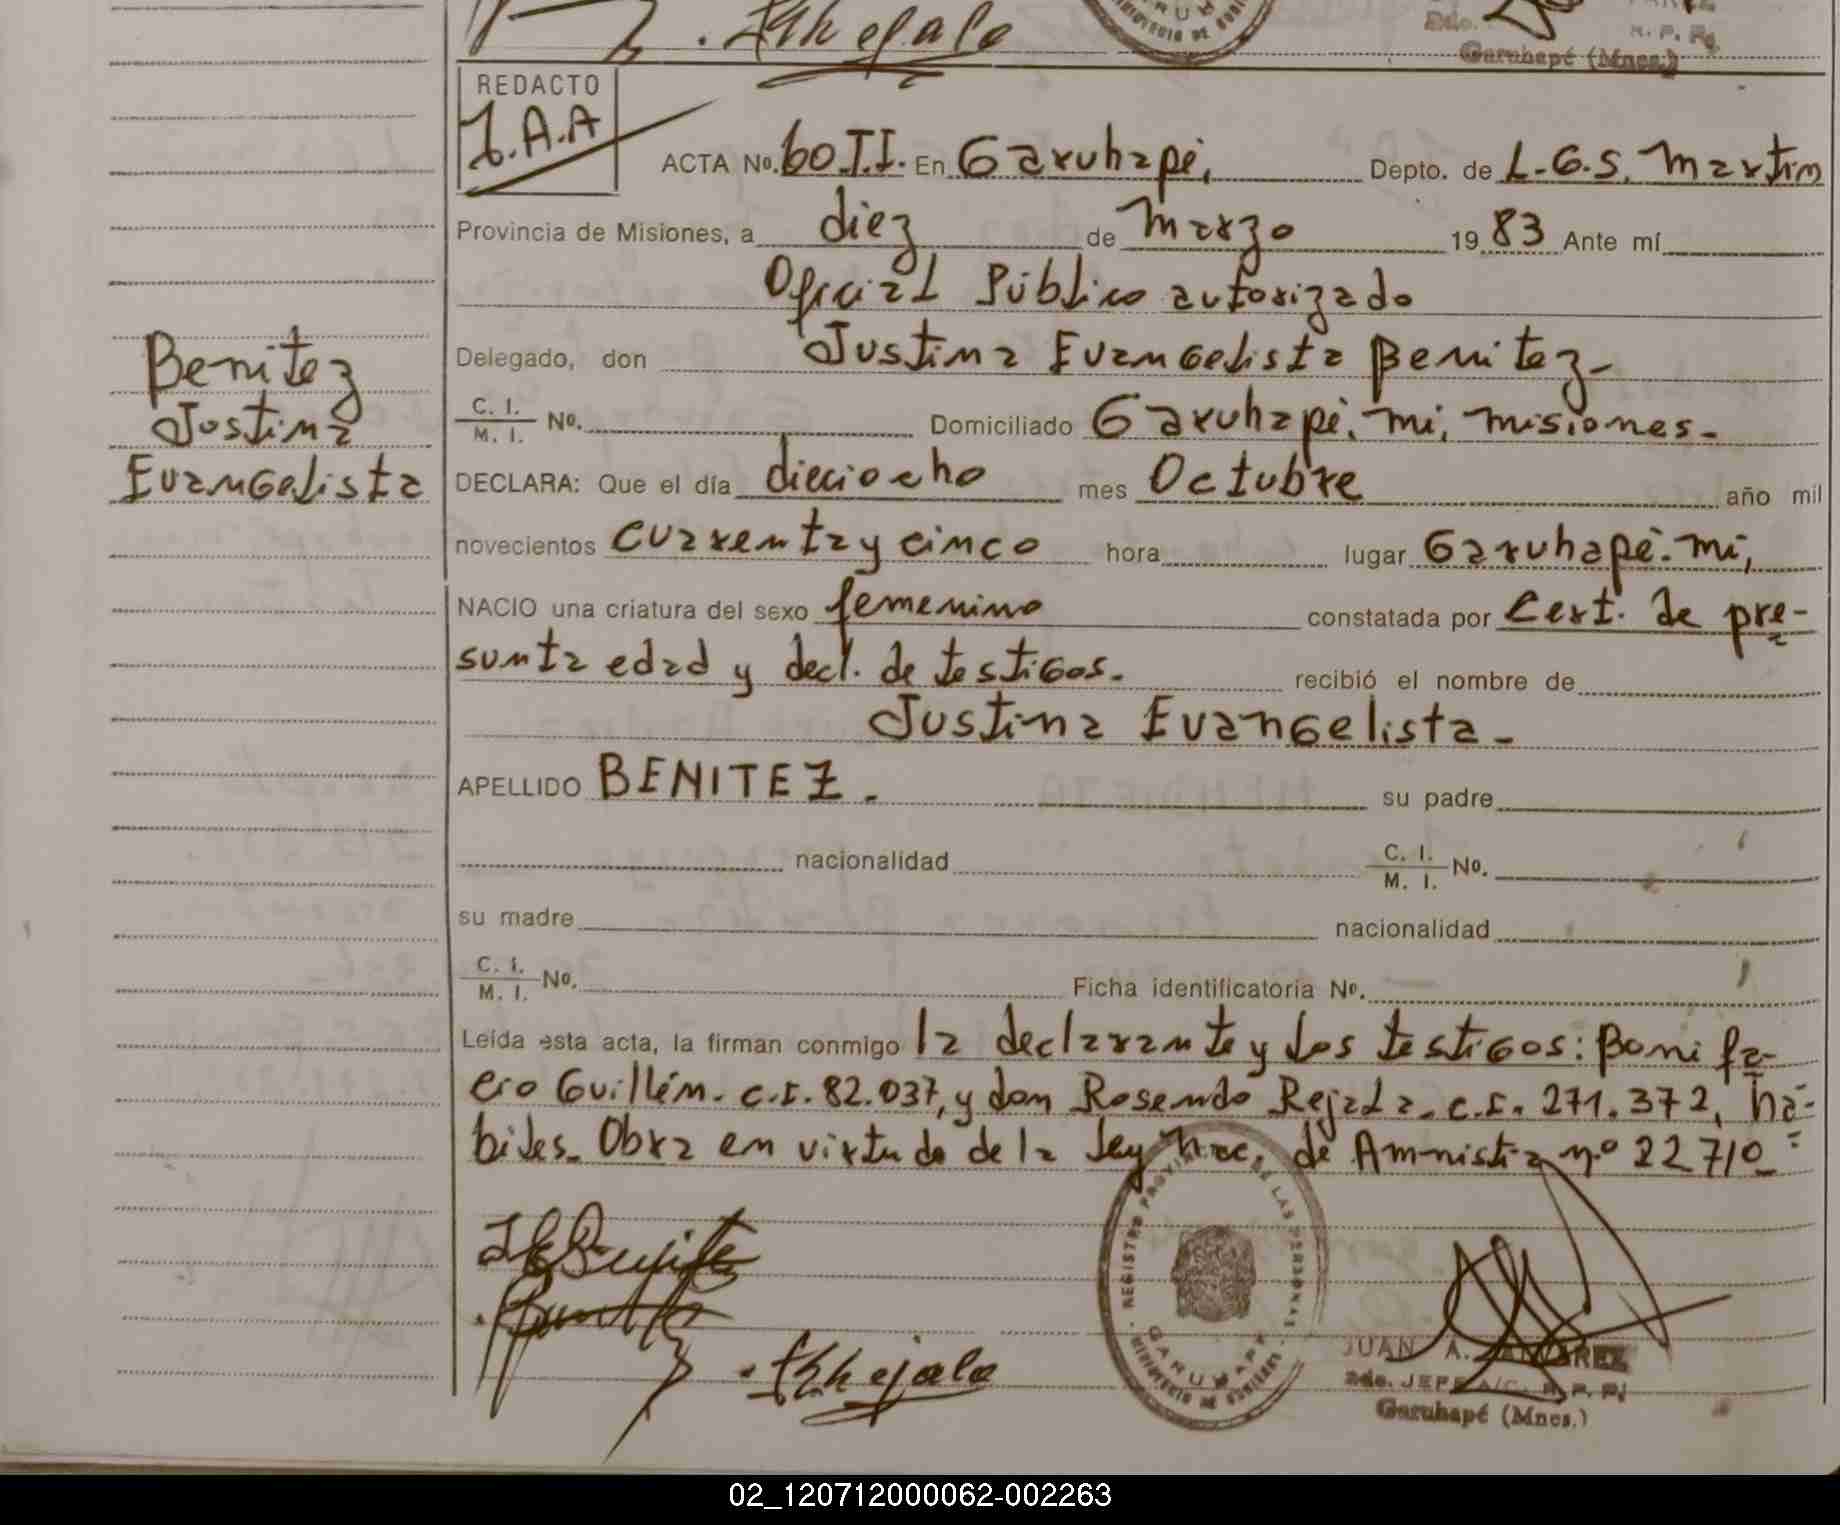 2do.
R. P. P.
Garuhapé (Mnes.)
REDACTO
J.A.A
ACTA No. 60 T.I. En Garuhapé, Depto. de L.G.S. Martin
Provincia de Misiones, a diez de Marzo 19 83 Ante mí
Oficial Público autorizado
Delegado, don Justina Evangelista Benitez-
C. I. / M. I. No. Domiciliado Garuhapé. mi, misiones-
DECLARA: Que el día dieciocho mes Octubre año mil
novecientos cuarenta y cinco hora lugar Garuhapé. mi,
NACIO una criatura del sexo femenino constatada por Cert. de pre-
sunta edad y decl. de testigos. recibió el nombre de
Justina Evangelista-
APELLIDO BENITEZ. su padre
nacionalidad C. I. / M. I. No.
su madre nacionalidad
C. I. / M. I. No. Ficha identificatoria No.
Leída esta acta, la firman conmigo la declarante y los testigos: Bonifa-
cio Guillén. c.I. 82.037, y don Rosendo Rejala. c.I. 271.372, há-
biles. Obra en virtud de la ley Nac. de Amnistia nº 22710-
Benitez
Justina
Evangelista
REGISTRO PROVINCIAL DE LAS PERSONAS
GARUHAPE
MINISTERIO DE GOBIERNO
JUAN A. ALVAREZ
2do. JEFE A/C. R. P. P.
Garuhapé (Mnes.)
02_120712000062-002263